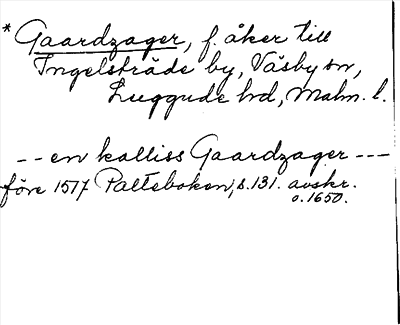 * Gaardzager, f. åker till
Ingelsträde by, Väsby sn,
Luggude hd, Malm. l.
-- en kalliss Gaardzager ---
före 1517 Palteboken, s. 131. avskr.
o. 1650.